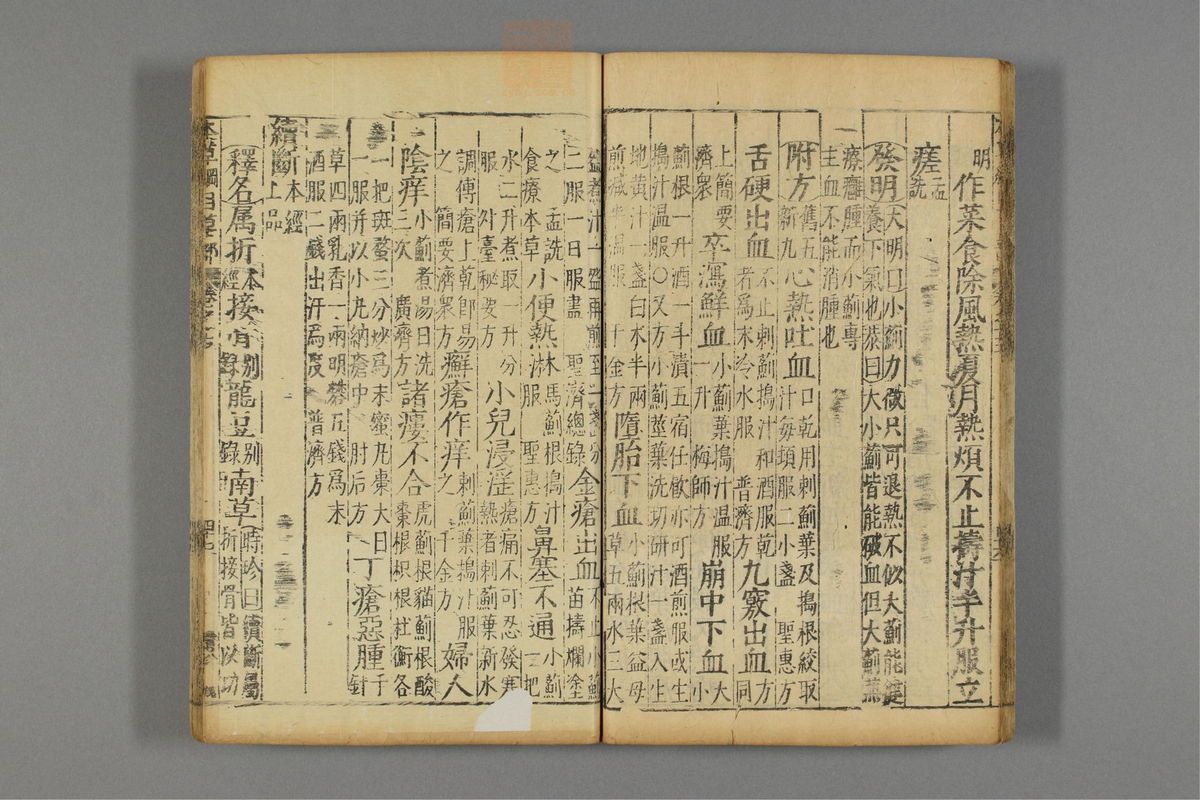 明作菜食除風熱夏月熱煩不止擣汁半升服立
瘥孟詵
發明大明曰小薊力微只可退熱不似大薊能健
養下氣也恭曰大小薊皆能破血但大薊兼
療癰腫而小薊專
主血不能消腫也
附方舊五新九心熱吐血口乾用刺薊葉及搗根絞取
汁每頓服二小盞聖惠方
舌硬出血不止刺薊搗汁和酒服乾
者為末冷水服普濟方九竅出血方同
上簡要
濟衆卒瀉鮮血小薊葉搗汁溫服
一升梅師方崩中下血大小
薊根一升酒一斗漬五宿任飲亦可酒煎服或生
搗汁温服〇又方小薊莖葉洗切研汁一盞入生
地黄汁一盞白术半兩
煎減半温服千金方墮胎下血小薊根葉益母
草五兩水三大
盌煮汁一盌再煎至一盞分
二服一日服盡聖濟總錄金瘡出血不止小薊
苗擣爛塗
之孟詵
食療本草小便熱淋馬薊根搗汁
服聖惠方鼻塞不通小薊
一把
水二升煮取一升分
服外臺秘要方小兒浸淫瘡痛不可忍發寒
熱者刺薊葉新水
調傅瘡上乾即易
之簡要濟衆方癬瘡作痒刺薊葉搗汁服
之千金方婦人
陰痒小薊煮湯日洗
三次廣濟方諸瘻不合虎薊根貓薊根酸
棗根枳根杜衡各
一把斑蝥三分炒為末蜜丸棗大日
一服并以小丸納瘡中肘后方丁瘡惡腫千針
草四兩乳香一兩明礬五錢為末
酒服二錢出汗為度普濟方
續斷本經
上品
釋名属折本經接骨别錄龍豆别錄南草時珍曰續斷屬
折接骨皆以功
本草綱目草部